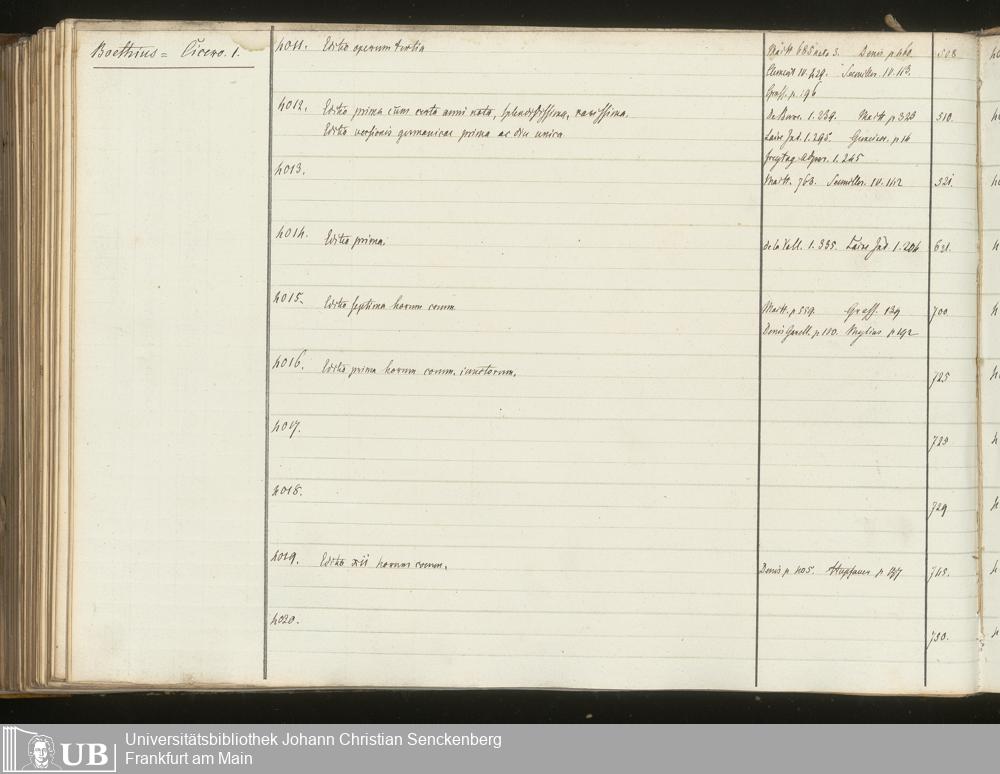 Boethius = Cicero. 1.
4011. Editio operum tertia
Maitt. 685 nota 3. Denis p. 660 508
Clement IV. 429. Seemiller. IV. 113.
Graff. p. 196
4012. Editio prima cum certa anni nota, splendidissima, rarissima.
De Bure. 1. 239. Maitt. p 323 510.
Editio versionis germanicae prima ac diu unica
Laire Ind. 1. 295. p 14
Freytag 1. 245
4013.
Maitt. 763. Seemiller. IV. 142 521.
4014. Editio prima.
de la Vall. 1. 335. Laire Ind. 1. 204 621.
4015. Editio septima horum comm.
Maitt. p 559. Graff. 139 700.
Denis Garell. p 180. Mylius p 192
4016. Editio prima horum comm. iunctorum.
725
4017.
4018.
729
4019. Editio xii horum comm.
Denis p. 405. p 137 745.
4020.
750.
UB
Universitätsbibliothek Johann Christian Senckenberg
Frankfurt am Main